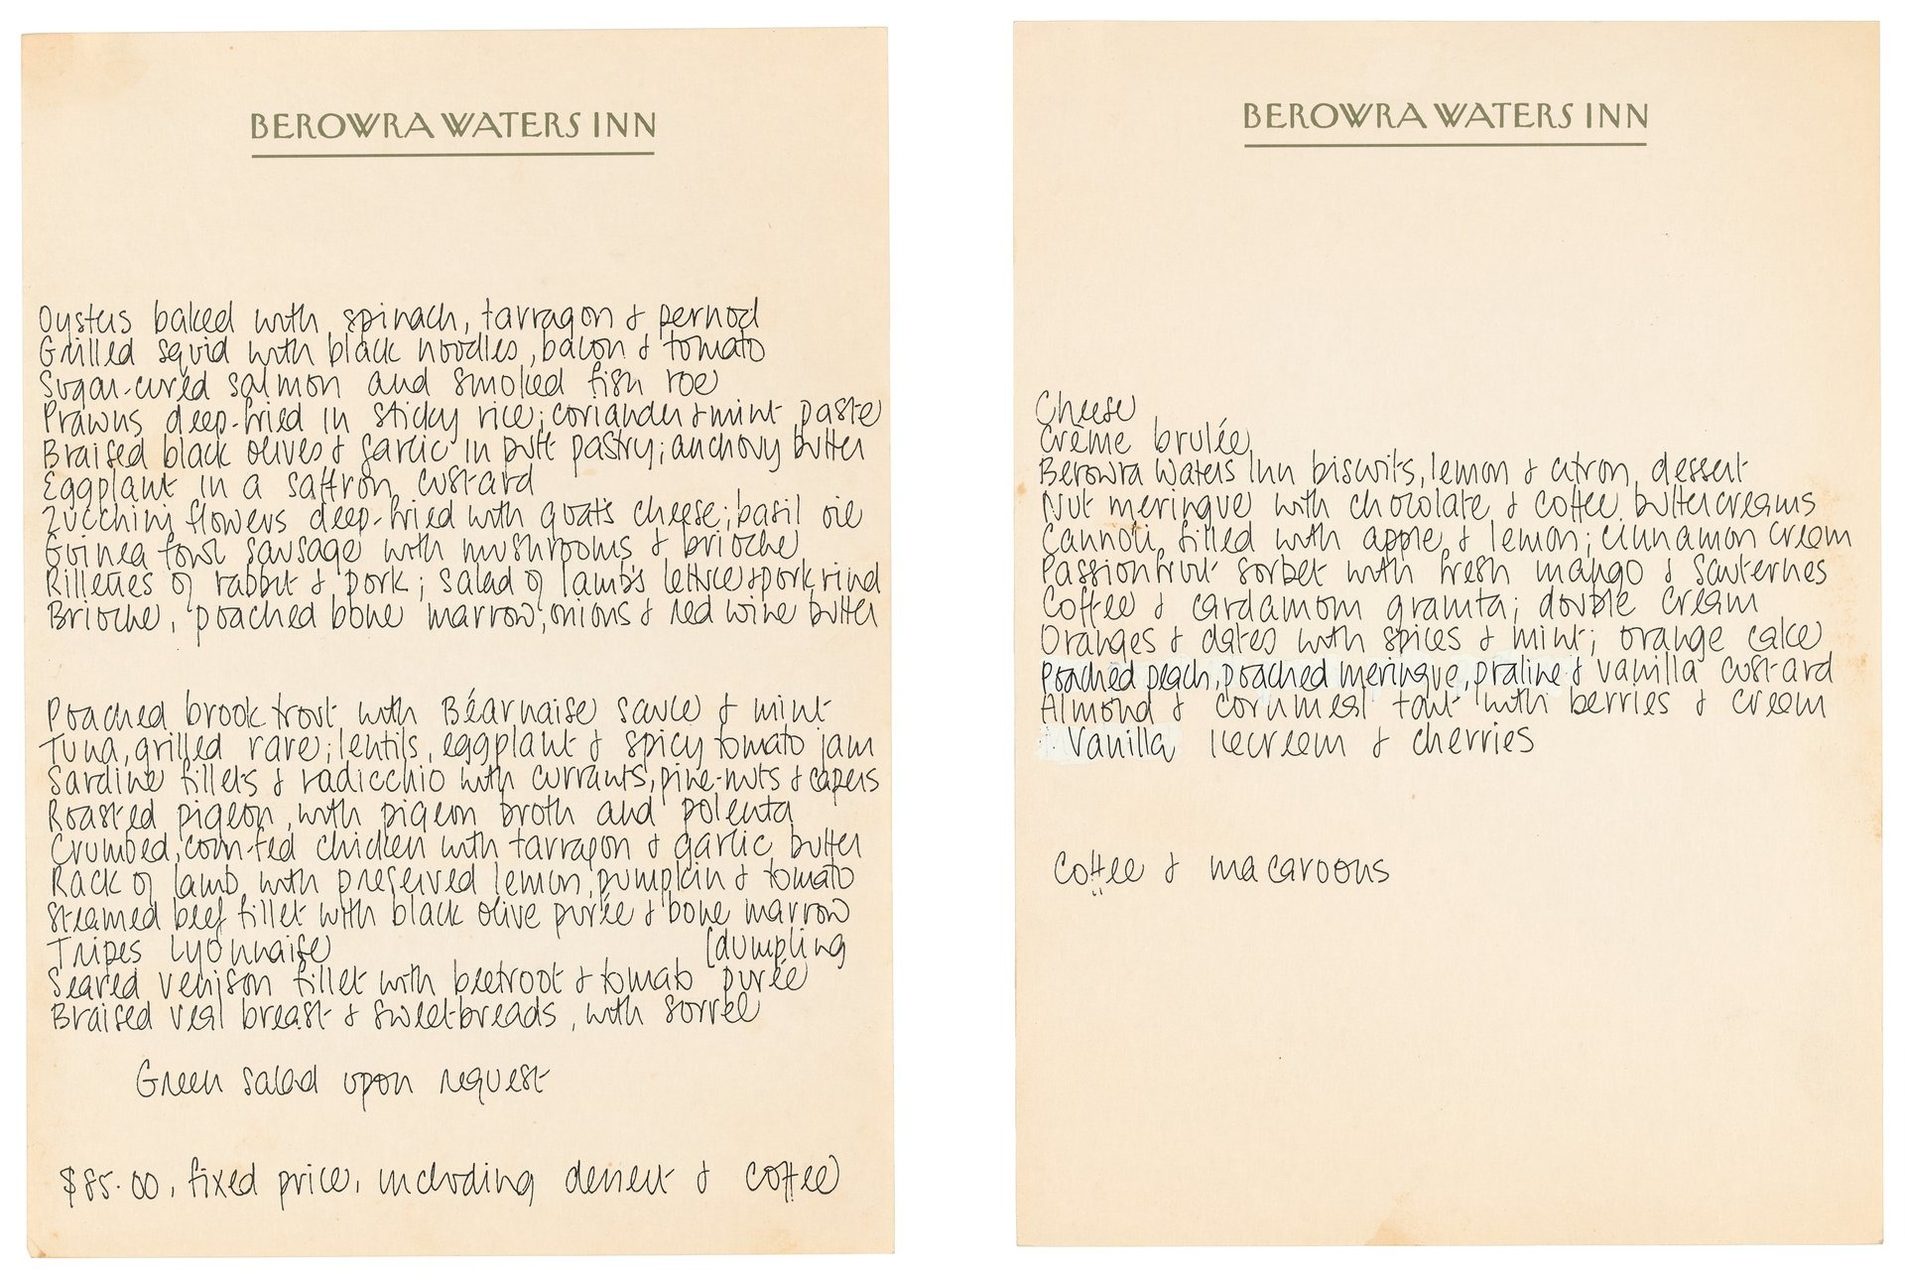 BEROWRA WATERS INN
Oysters baked with spinach, tarragon & pernod
Grilled squid with black noodles, bacon & tomato
Sugar-cured salmon and smoked fish roe
Prawns deep-fried in sticky rice; coriander & mint paste
Braised black olives & garlic in puff pastry; anchovy butter
Eggplant in a saffron custard
Zucchini flowers deep-fried with goat's cheese; basil oil
Guinea fowl sausage with mushrooms & brioche
Rillettes of rabbit & pork; salad of lamb's lettuce & pork rind
Brioche, poached bone marrow, onions & red wine butter
Poached brook trout with Béarnaise sauce & mint
Tuna, grilled rare; lentils, eggplant & spicy tomato jam
Sardine fillets & radicchio with currants, pine-nuts & capers
Roasted pigeon, with pigeon broth and polenta
Crumbed, corn-fed chicken with tarragon & garlic butter
Rack of lamb with preserved lemon, pumpkin & tomato
Steamed beef fillet with black olive purée & bone marrow
Tripes Lyonnaise (dumpling
Seared venison fillet with beetroot & tomato purée
Braised veal breast & sweetbreads, with sorrel
Green salad upon request
$85.00, fixed price, including dessert & coffee
BEROWRA WATERS INN
Cheese
Crème brulée
Berowra Waters Inn biscuits, lemon & citron dessert
Nut meringue with chocolate & coffee buttercreams
Cannoli, filled with apple & lemon; cinnamon cream
Passionfruit sorbet with fresh mango & Sauternes
Coffee & cardamom granita; double cream
Oranges & dates with spices & mint; orange cake
Poached peach, poached meringue, praline & vanilla custard
Almond & cornmeal tart with berries & cream
Vanilla icecream & cherries
Coffee & macaroons